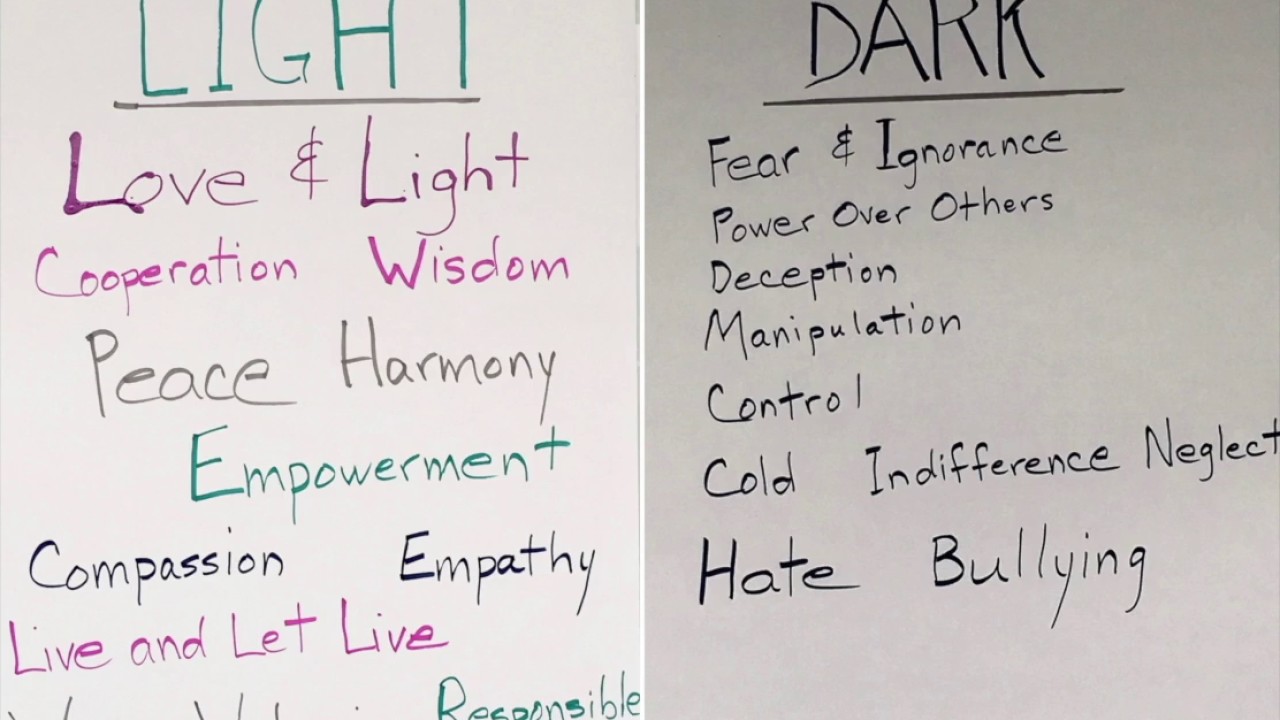 LIGHT
Love & Light
Cooperation Wisdom
Peace Harmony
Empowerment
Compassion Empathy
Live and Let Live
Responsible
DARK
Fear & Ignorance
Power Over Others
Deception
Manipulation
Control
Cold Indifference Neglect
Hate Bullying